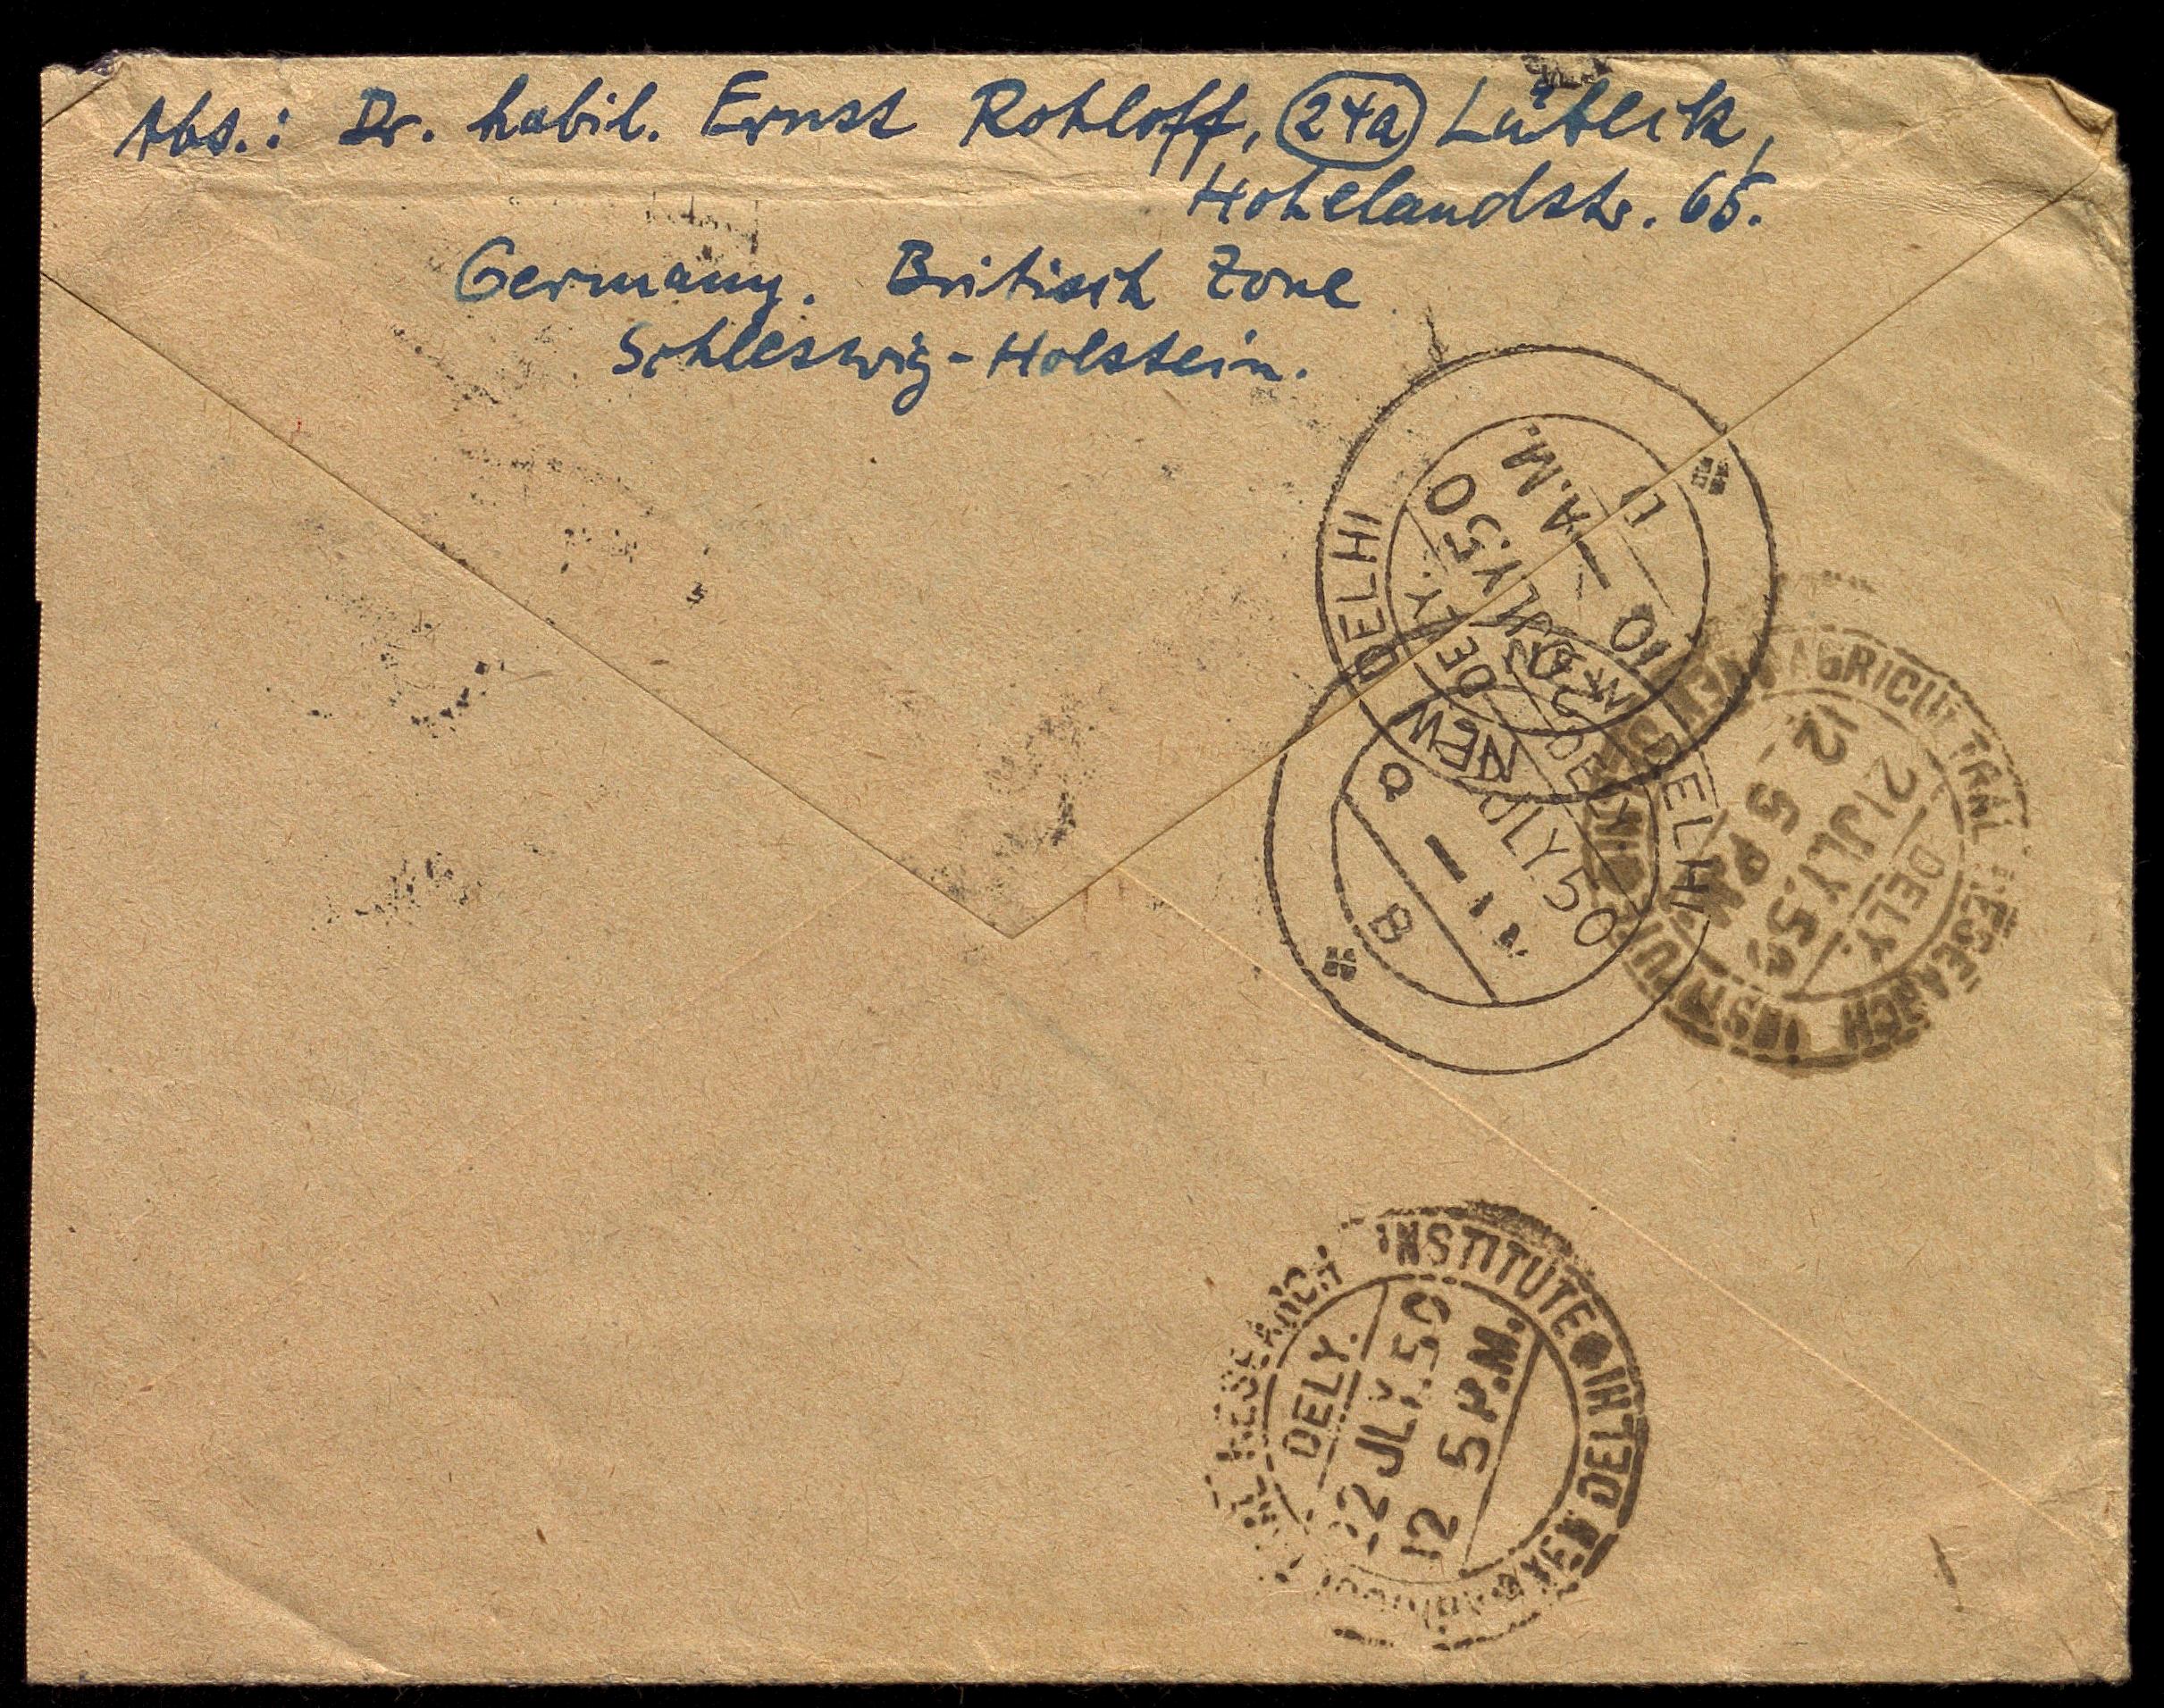 Abs.: Dr. habil. Ernst Rohloff, 24a Lübeck,
Hohelandstr. 65.
Germany. Britisch Zone
Schleswig-Holstein.
NEW DELHI
DELY.
JLY.50
10 — 11
A.M.
NEW DELHI
DELY.
JLY 50
8
AGRICULTRAL RESEARCH INSTITUTE NEW DELHI
DELY.
21 JLY.50
12 5 P.M.
RESEARCH INSTITUTE NEW DELHI
DELY.
22 JLY.50
12 5 P.M.